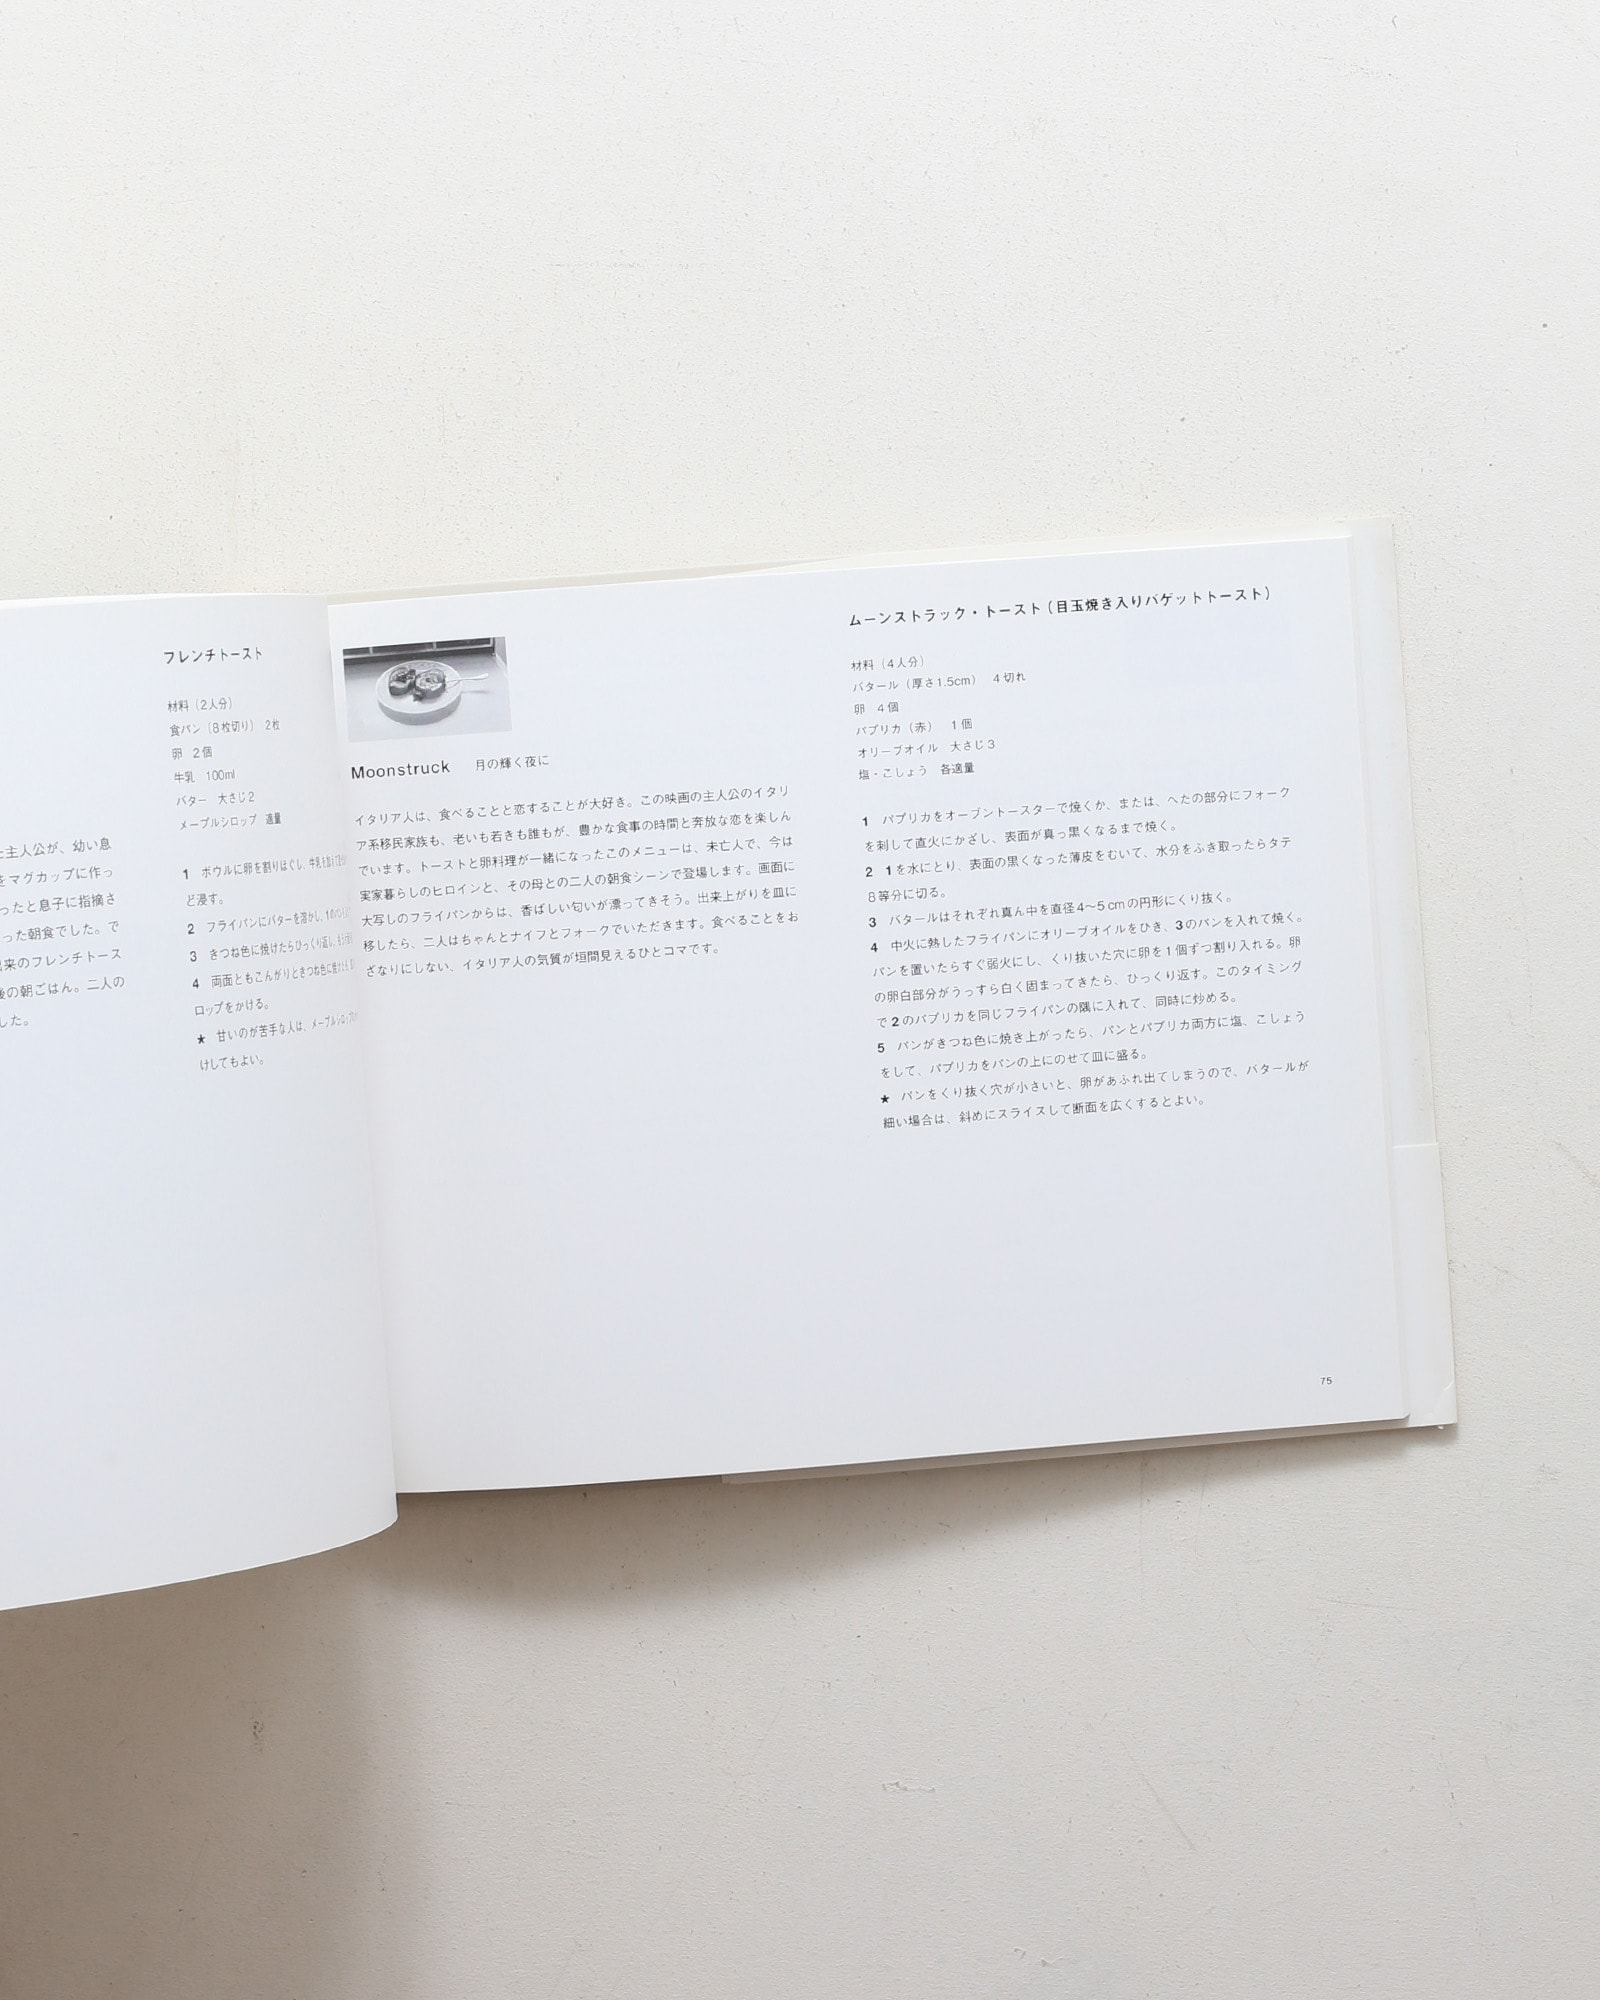 た主人公が、幼い息
をマグカップに作っ
ったと息子に指摘さ
った朝食でした。で
出来のフレンチトース
後の朝ごはん。二人の
した。
フレンチトースト
材料（2人分）
食パン（8枚切り） 2枚
卵 2個
牛乳 100ml
バター 大さじ2
メープルシロップ 適量
1 ボウルに卵を割りほぐし、牛乳を
ど浸す。
2 フライパンにバターを溶かし、1の
3 きつね色に焼けたらひっくり返し、
4 両面ともこんがりときつね色に焼けたら
ロップをかける。
★ 甘いのが苦手な人は、メープルシロップ
けしてもよい。
Moonstruck 月の輝く夜に
イタリア人は、食べることと恋することが大好き。この映画の主人公のイタリ
ア系移民家族も、老いも若きも誰もが、豊かな食事の時間と奔放な恋を楽しん
でいます。トーストと卵料理が一緒になったこのメニューは、未亡人で、今は
実家暮らしのヒロインと、その母との二人の朝食シーンで登場します。画面に
大写しのフライパンからは、香ばしい匂いが漂ってきそう。出来上がりを皿に
移したら、二人はちゃんとナイフとフォークでいただきます。食べることをお
ざなりにしない、イタリア人の気質が垣間見えるひとコマです。
ムーンストラック・トースト（目玉焼き入りバゲットトースト）
材料（4人分）
バタール（厚さ1.5cm） 4切れ
卵 4個
パプリカ（赤） 1個
オリーブオイル 大さじ3
塩・こしょう 各適量
1 パプリカをオーブントースターで焼くか、または、へたの部分にフォーク
を刺して直火にかざし、表面が真っ黒くなるまで焼く。
2 1を水にとり、表面の黒くなった薄皮をむいて、水分をふき取ったらタテ
8等分に切る。
3 バタールはそれぞれ真ん中を直径4〜5cmの円形にくり抜く。
4 中火に熱したフライパンにオリーブオイルをひき、3のパンを入れて焼く。
パンを置いたらすぐ弱火にし、くり抜いた穴に卵を1個ずつ割り入れる。卵
の卵白部分がうっすら白く固まってきたら、ひっくり返す。このタイミング
で2のパプリカを同じフライパンの隅に入れて、同時に炒める。
5 パンがきつね色に焼き上がったら、パンとパプリカ両方に塩、こしょう
をして、パプリカをパンの上にのせて皿に盛る。
★ パンをくり抜く穴が小さいと、卵があふれ出てしまうので、バタールが
細い場合は、斜めにスライスして断面を広くするとよい。
75